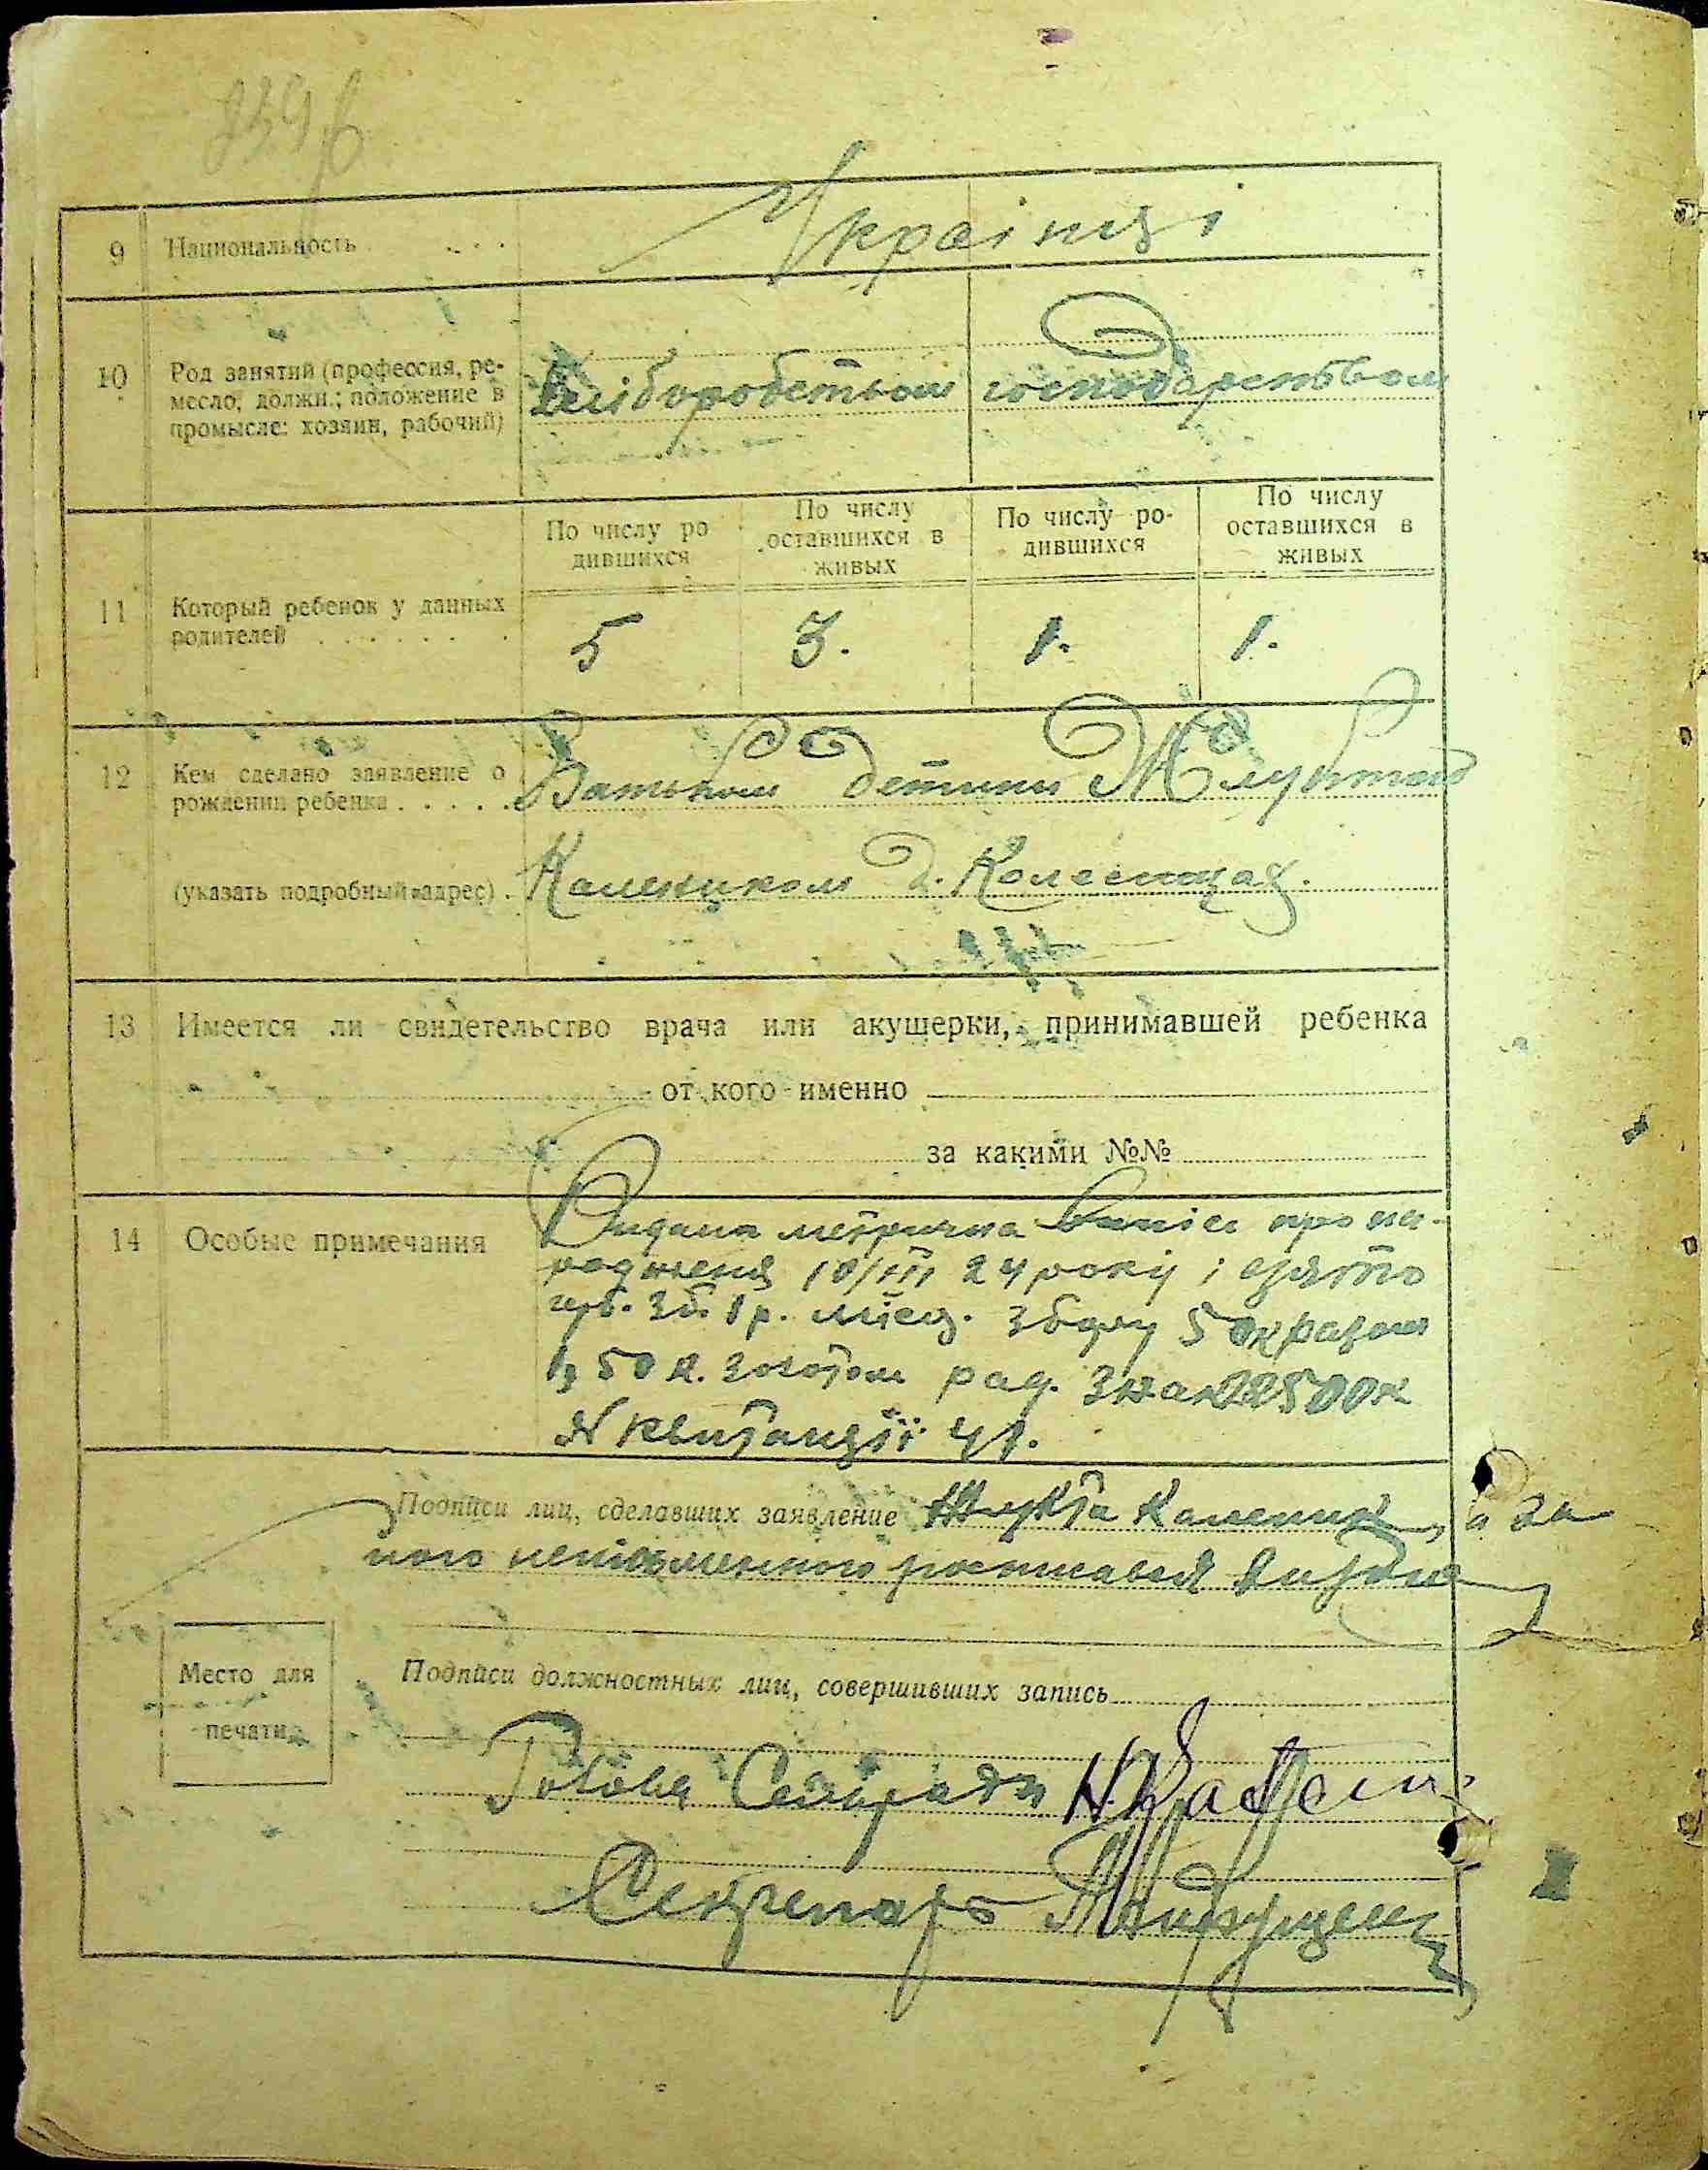 9 Национальность . . . . Українці
10 Род занятий (профессия, ре-
месло, должн.; положение в
промысле: хозяин, рабочий)
Хліборобством господарством
По числу ро
дившихся
По числу
оставшихся в
живых
По числу ро-
дившихся
По числу
оставшихся в
живых
11 Который ребенок у данных
родителей . . . . . . .
5 3. 1. 1.
12 Кем сделано заявление о
рождении ребенка . . . . .
Батьком детини Жлуктою
(указать подробный адрес) . Калеником д. Колесицях.
13 Имеется ли свидетельство врача или акушерки, принимавшей ребенка
от кого именно
за какими №№
14 Особые примечания
Видана метрична про на-
родженя 10/III 24 року і взято
герб. зб. 1 р. місц. збору 50 к разом
1 р 50 к. золотом рад. знак 22500 к
N квитанції 41.
Подписи лиц, сделавших заявление Жлукта Каленик, а за
його неписьменного росписався
Место для
печати
Подписи должностных лиц, совершивших запись
Голова Сельради Н.
Секретарь